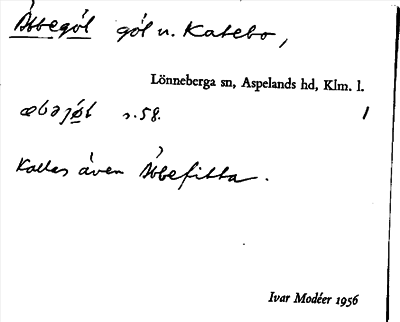 Äbbegöl göl n. Katebo,
Lönneberga sn, Aspelands hd, Klm. l.
æbəjøl s.58. 1
Kallas även Äbbefitta.
Ivar Modéer 1956